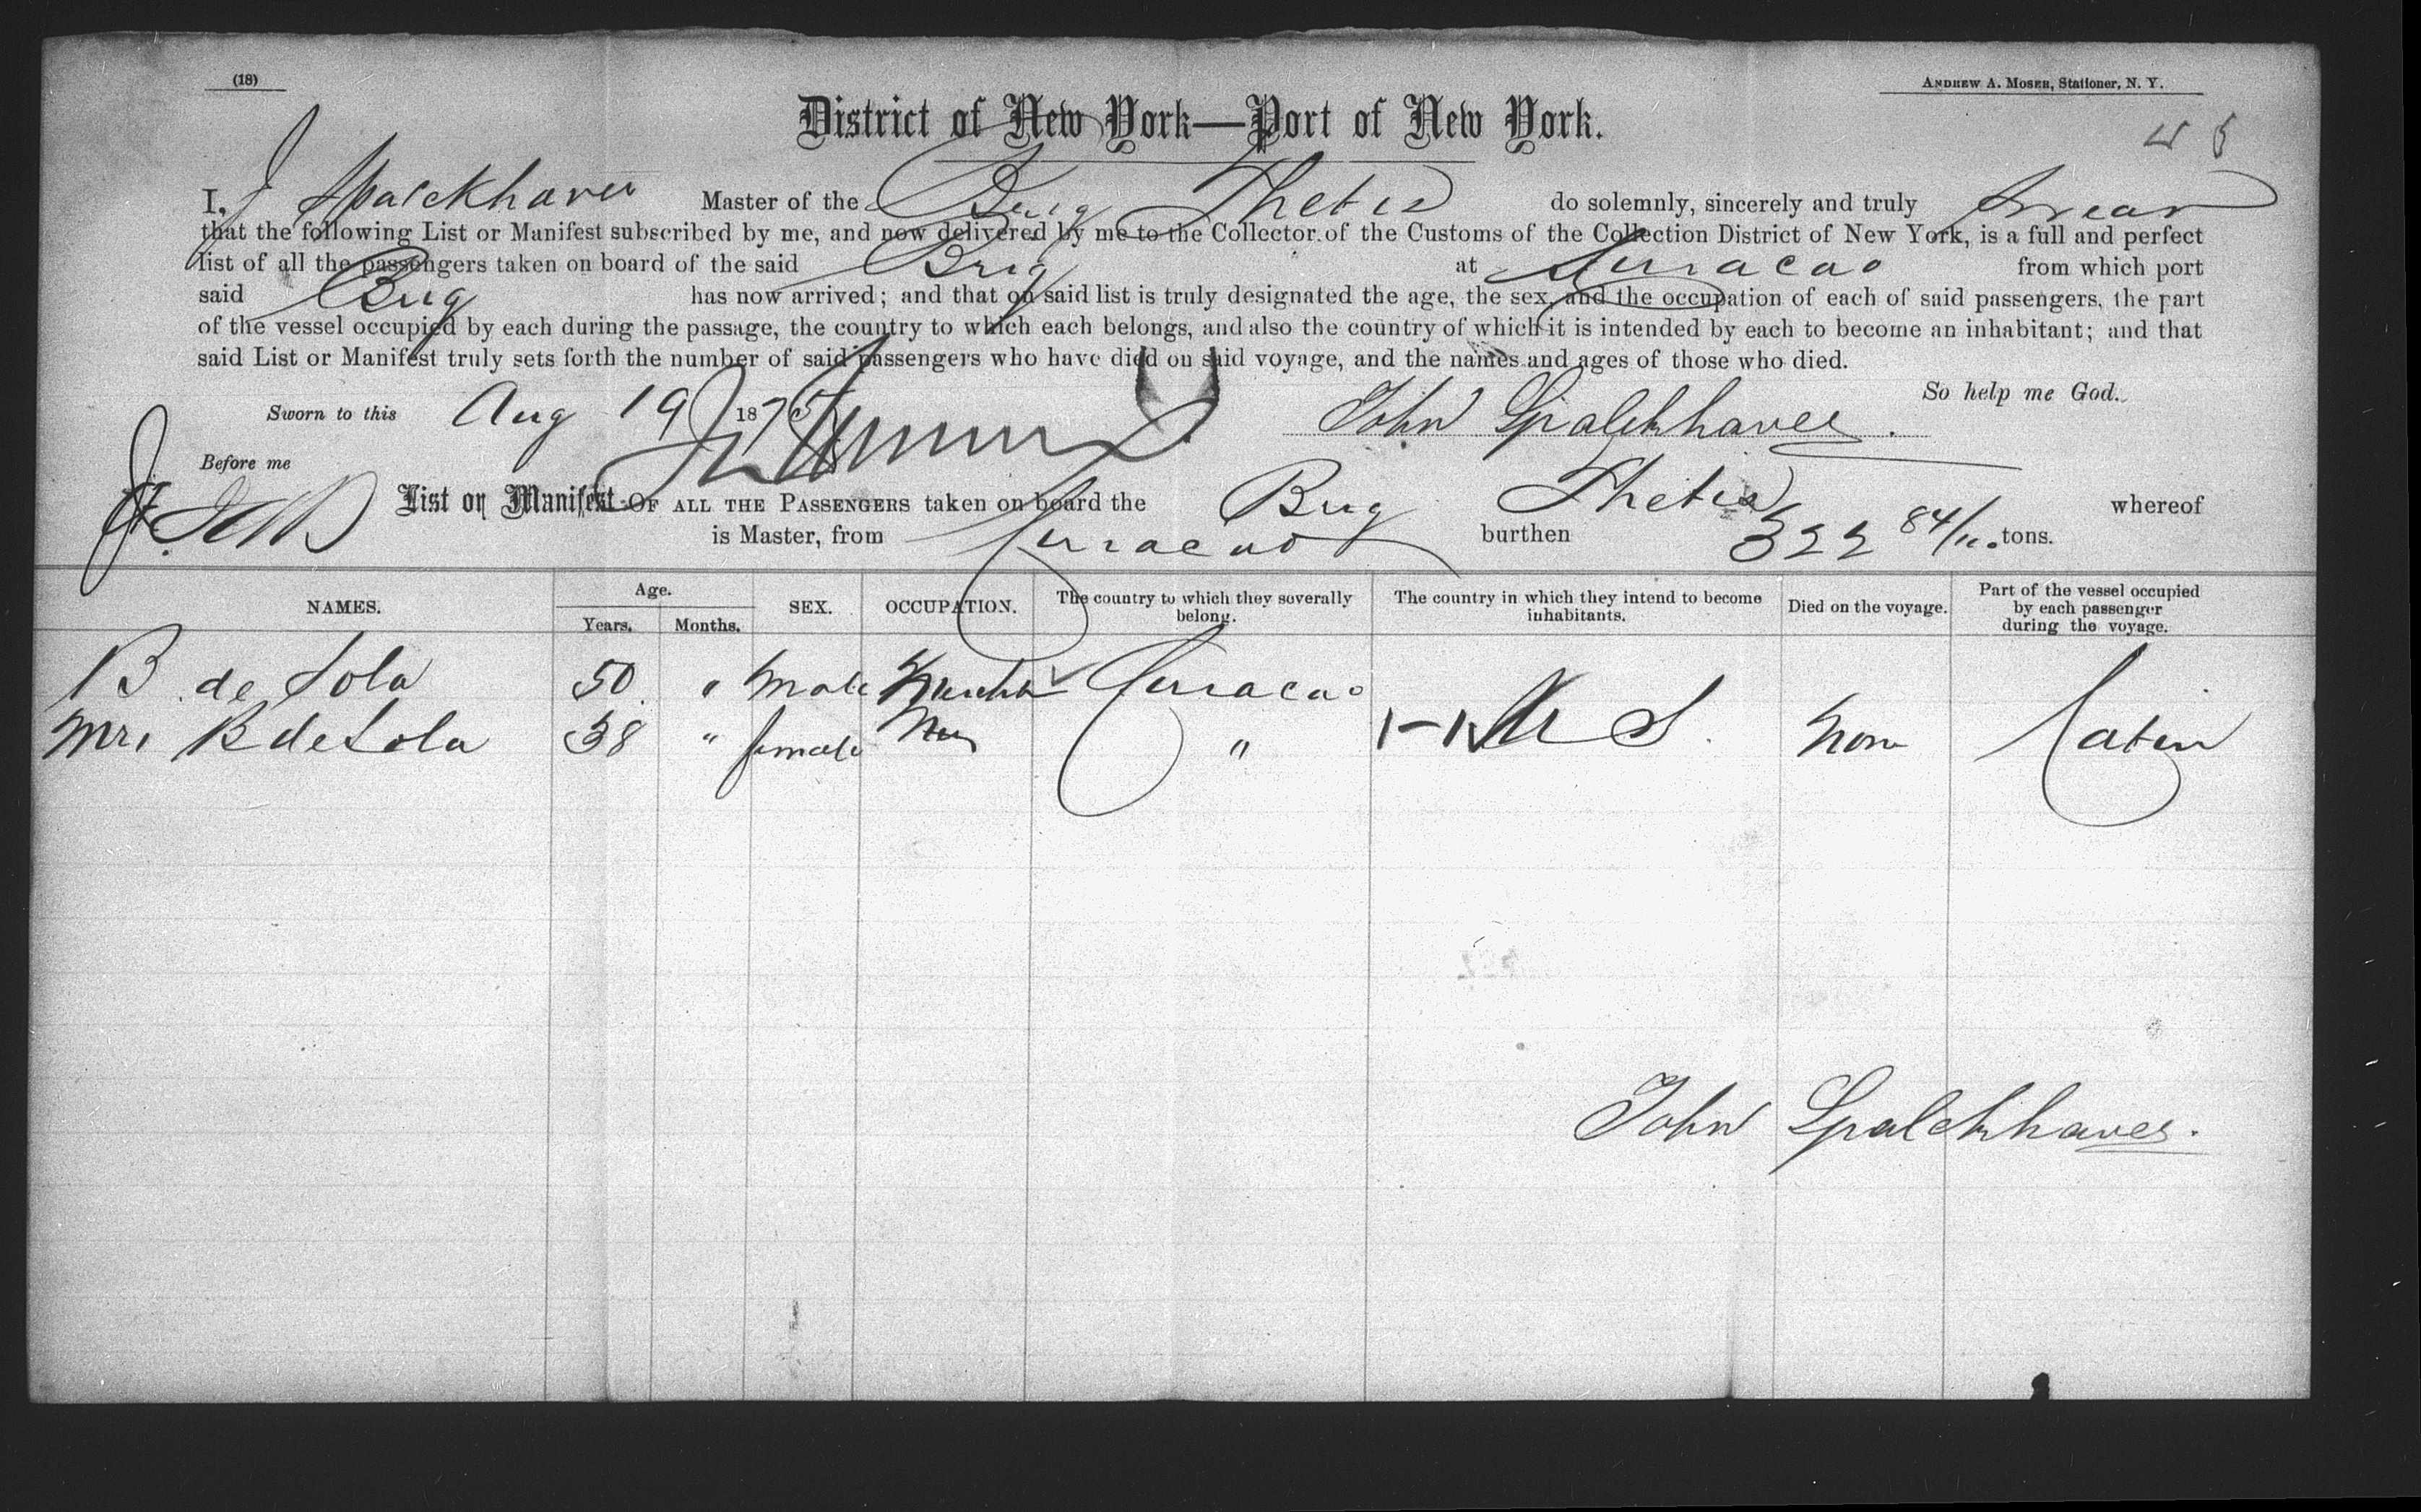 (18)
ANDREW A. MOSER, Stationer, N. Y.
District of New York—Port of New York.
I, J Spalckhaver Master of the Brig Thetis do solemnly, sincerely and truly Swear
that the following List or Manifest subscribed by me, and now delivered by me to the Collector of the Customs of the Collection District of New York, is a full and perfect
list of all the passengers taken on board of the said Brig at Curacao from which port
said Brig has now arrived; and that on said list is truly designated the age, the sex, and the occupation of each of said passengers, the part
of the vessel occupied by each during the passage, the country to which each belongs, and also the country of which it is intended by each to become an inhabitant; and that
said List or Manifest truly sets forth the number of said passengers who have died on said voyage, and the names and ages of those who died.
So help me God.
Sworn to this Aug 19 1875 John Spalckhaver.
Before me
List or Manifest OF ALL THE PASSENGERS taken on board the Brig Thetis whereof
is Master, from Curacao burthen 322 84/100 tons.
NAMES. Age. Years. Months. SEX. OCCUPATION. The country to which they severally belong. The country in which they intend to become inhabitants. Died on the voyage. Part of the vessel occupied by each passenger during the voyage.
B de Sola 50 " male Curacao
Mrs B de Sola 38 " female " U S. None Cabin
John Spalckhaver.